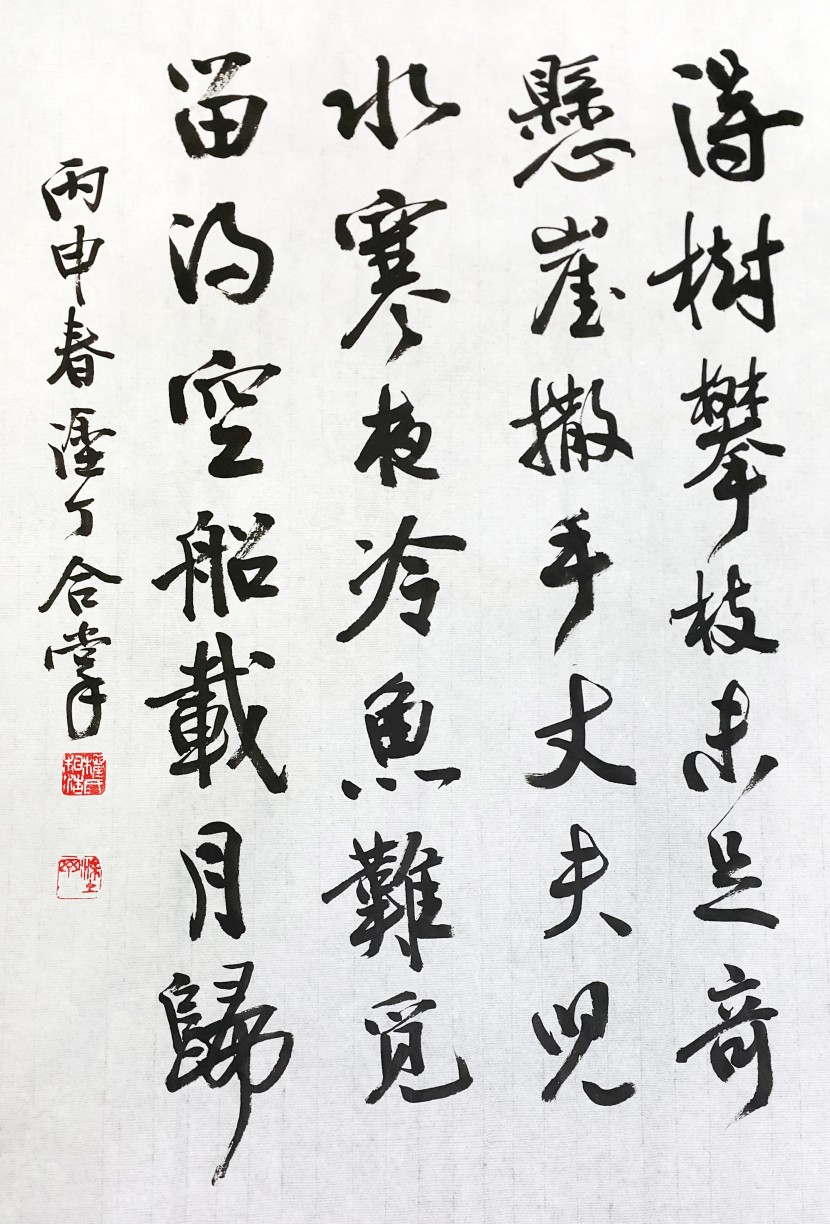 得樹攀枝未足奇
懸崖撒手丈夫兒
水寒夜冷魚難覓
留得空船載月歸
丙申春 合掌